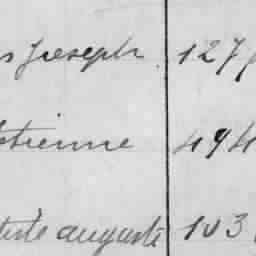 s Joseph 127
Etienne 494
tiste auguste 103